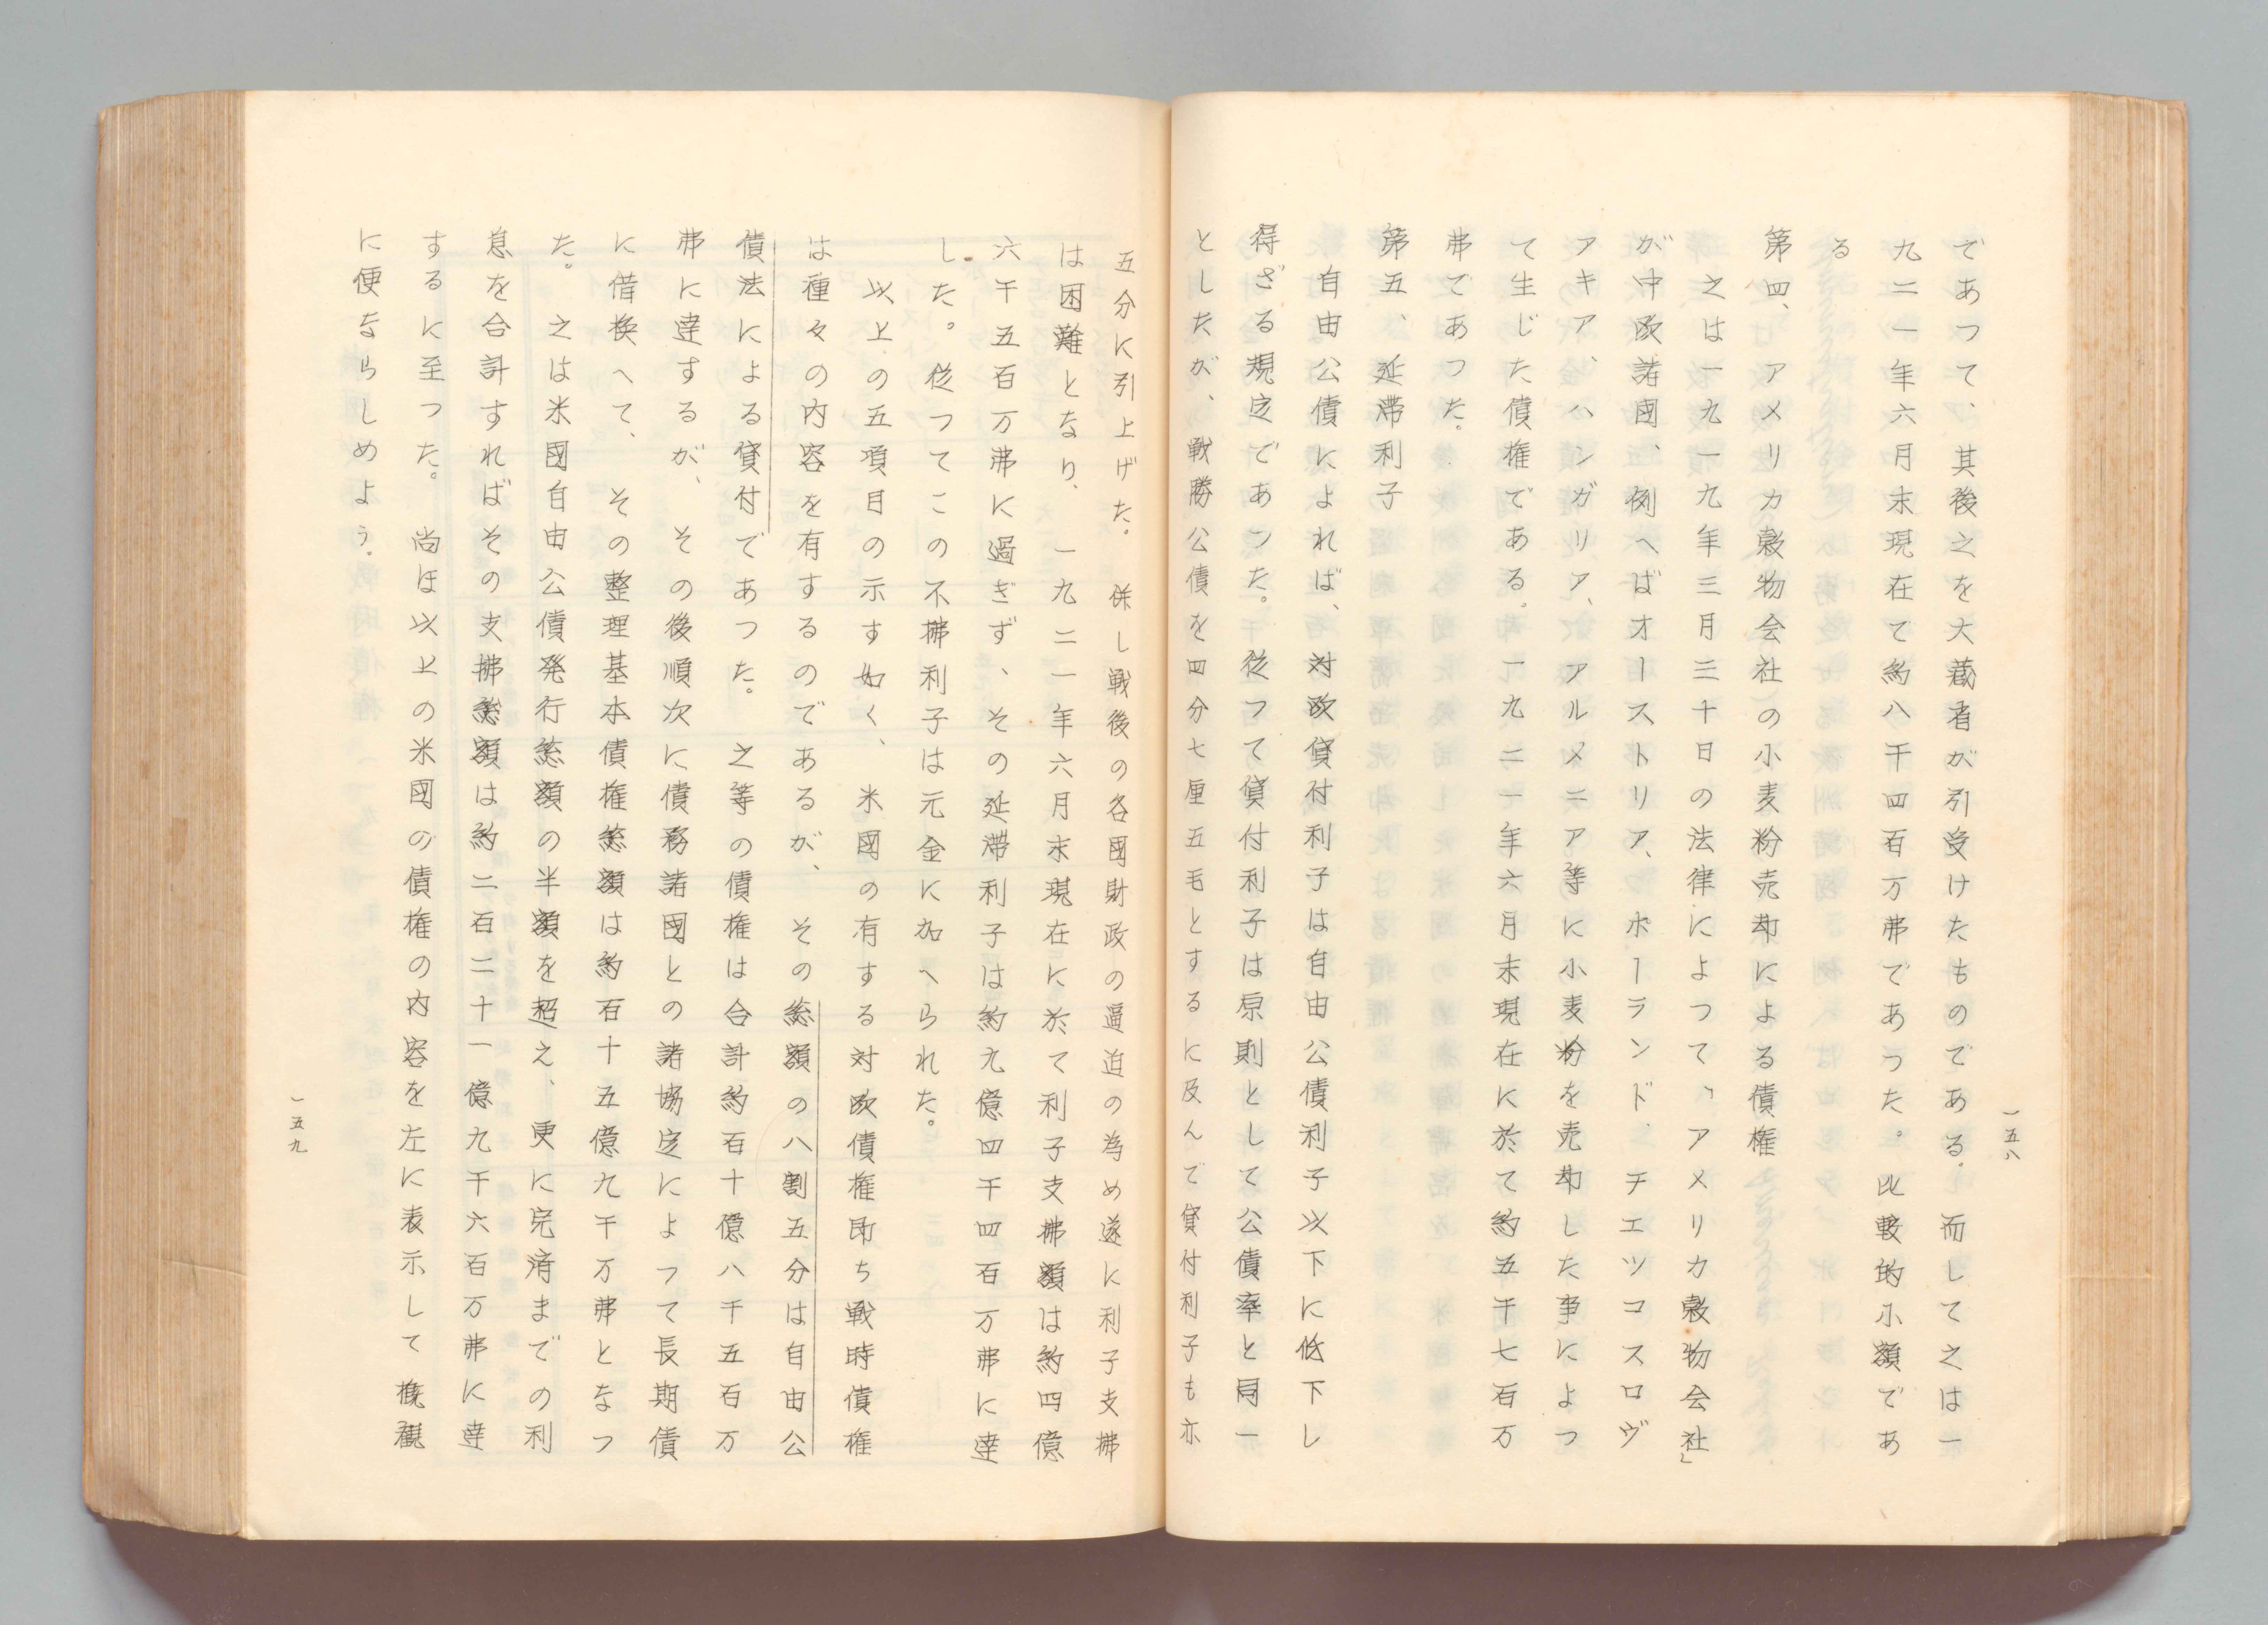 一五八
であつて、其後之を大蔵省が引受けたものである。而して之は一
九二一年六月末現在で約八千四百万弗であつた。比較的小額であ
る
第四、アメリカ穀物会社の小麦粉売却による債権
之は一九一九年三月三十日の法律によつて、アメリカ穀物会社」
が中欧諸國、例へばオーストリア、ポーランド、チエツコスロヴ
アキア、ハンガリア、アルメニア等に小麦粉を売却した事によつ
て生じた債権である。一九二一年六月末現在に於て約五千七百万
弗であつた。
第五、延滞利子
自由公債によれば、対欧貸付利子は自由公債利子以下に低下し
得ざる規定であつた。従つて貸付利子は原則として公債率と同一
としたが、戦勝公債を四分七厘五毛とするに及んで貸付利子も亦
五分に引上げた。併し戦後の各國財政の逼迫の為め遂に利子支拂
は困難となり、一九二一年六月末現在に於て利子支拂額は約四億
六千五百万弗に過ぎず、その延滞利子は約九億四千四百万弗に達
した。従つてこの不拂利子は元金に加へられた。
以上の五項目の示す如く、米國の有する対欧債権即ち戦時債権
は種々の内容を有するのであるが、その総額の八割五分は自由公
債法による貸付であつた。之等の債権は合計約百十億八千五百万
弗に達するが、その後順次に債務諸國との諸協定によつて長期債
に借換へて、その整理基本債権総額は約百十五億九千万弗となつ
た。之は米國自由公債発行総額の半額を超え、更に完済までの利
息を合計すればその支拂総額は約二百二十一億九千六百万弗に達
するに至つた。尚ほ以上の米國の債権の内容を左に表示して概観
に便ならしめよう。
一五九